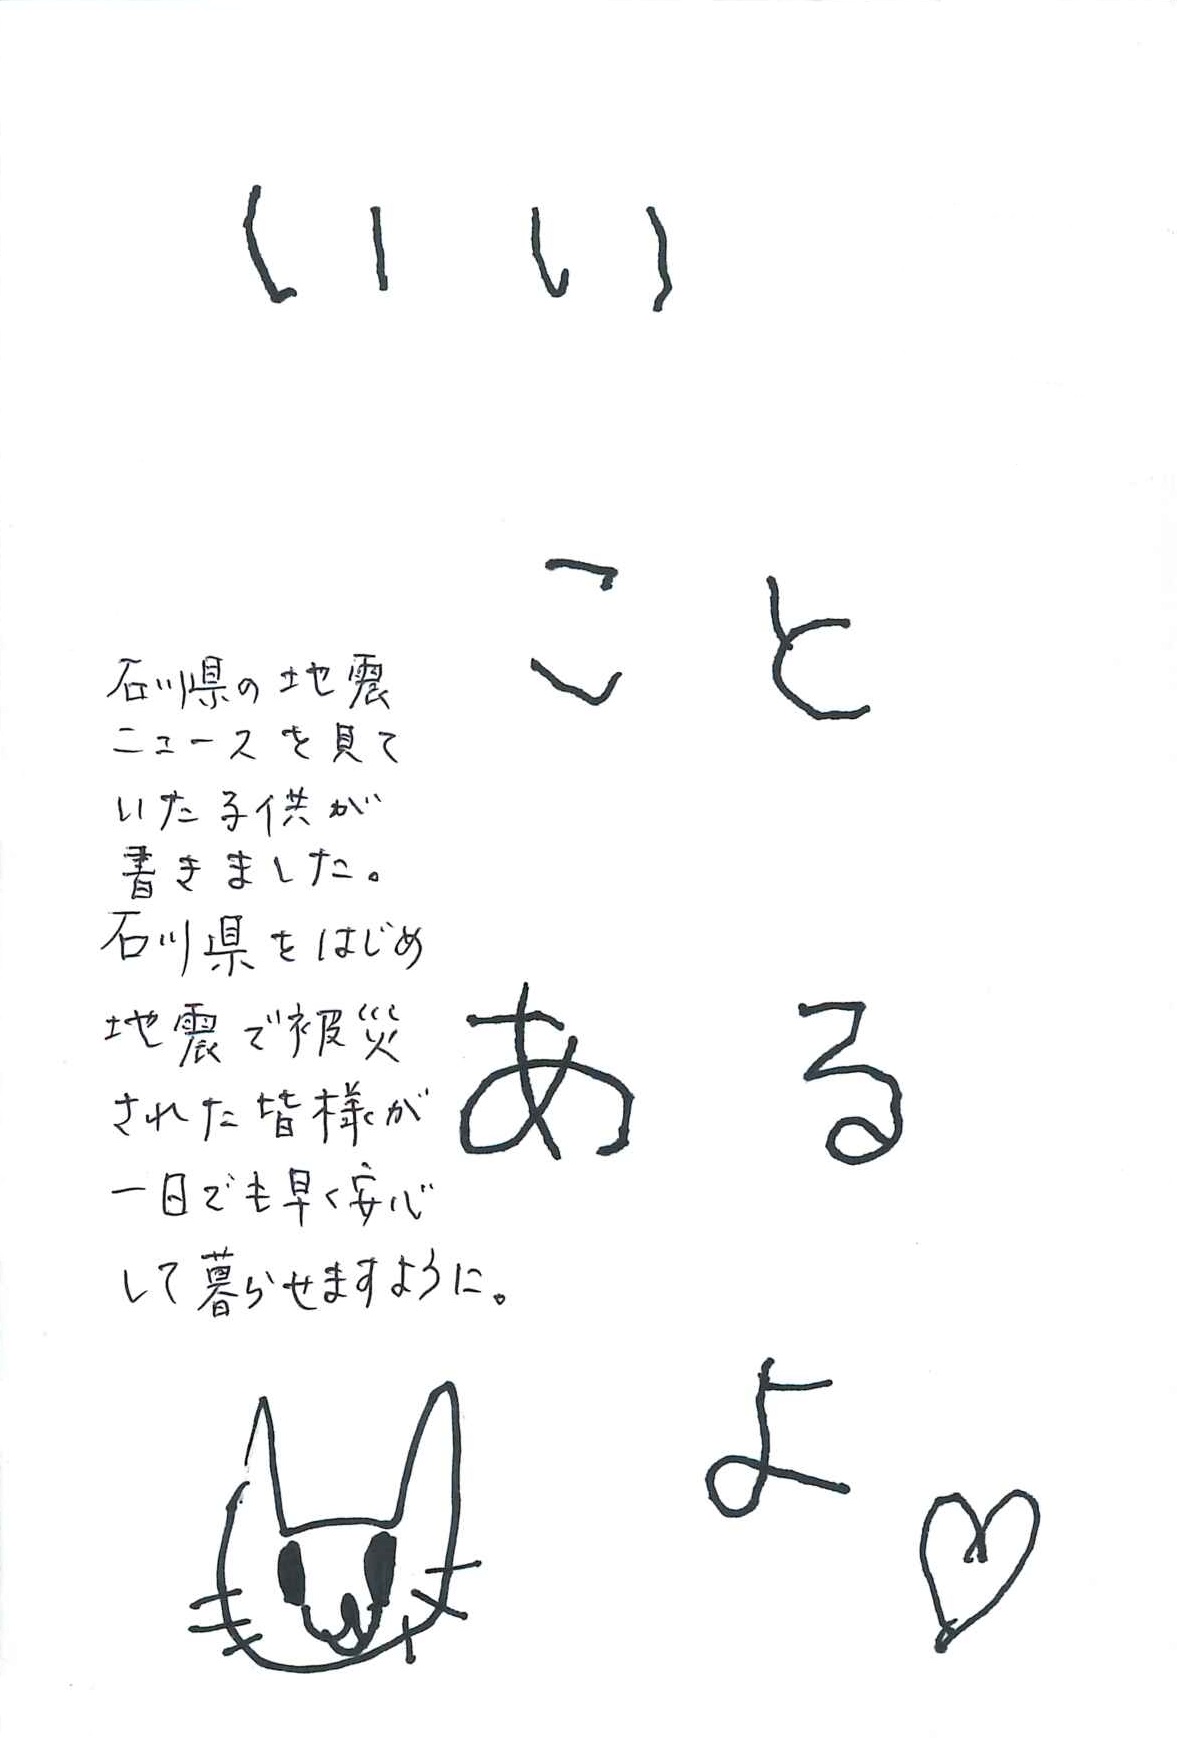 いい
こと
ある
よ
石川県の地震
ニュースを見て
いた子供が
書きました。
石川県をはじめ
地震で被災
された皆様が
一日でも早く安心
して暮らせますように。